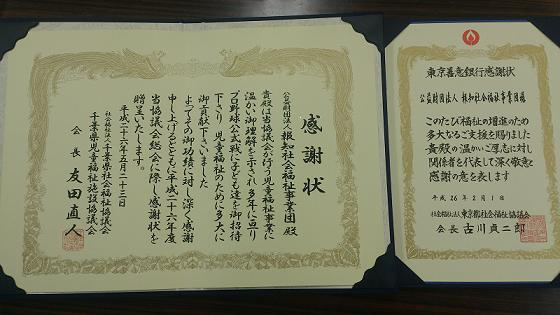 感謝状
公益財団法人 報知社会福祉事業団 殿
貴殿は当協議会が行う児童福祉事業に
温かい御理解を示され多年に亘り
プロ野球公式戦に子ども達を御招待
下さり 児童福祉のために多大に
御貢献下さいました
よってその御功績に対し深く感謝
申し上げるとともに平成二十六年度
当協議会総会に際し感謝状を
贈呈いたします。
平成二十六年五月二十三日
社会福祉法人千葉県社会福祉協議会
千葉県児童福祉施設協議会
会長 友田直人
東京善意銀行感謝状
公益財団法人 報知社会福祉事業団様
このたび福祉の増進のため
多大なるご支援を賜りました
貴殿の温かいご厚志に対し
関係者を代表して深く敬意と
感謝の意を表します
平成26年2月1日
社会福祉法人東京都社会福祉協議会
会長 古川貞二郎